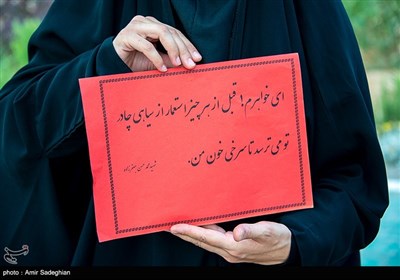 ای خواهرم! قبل از هر چیز استعمار از سیاهی چادر
تو می ترسد تا سرخی خون من.
شهید محمد حسن جعفرزاده
photo : Amir Sadeghian